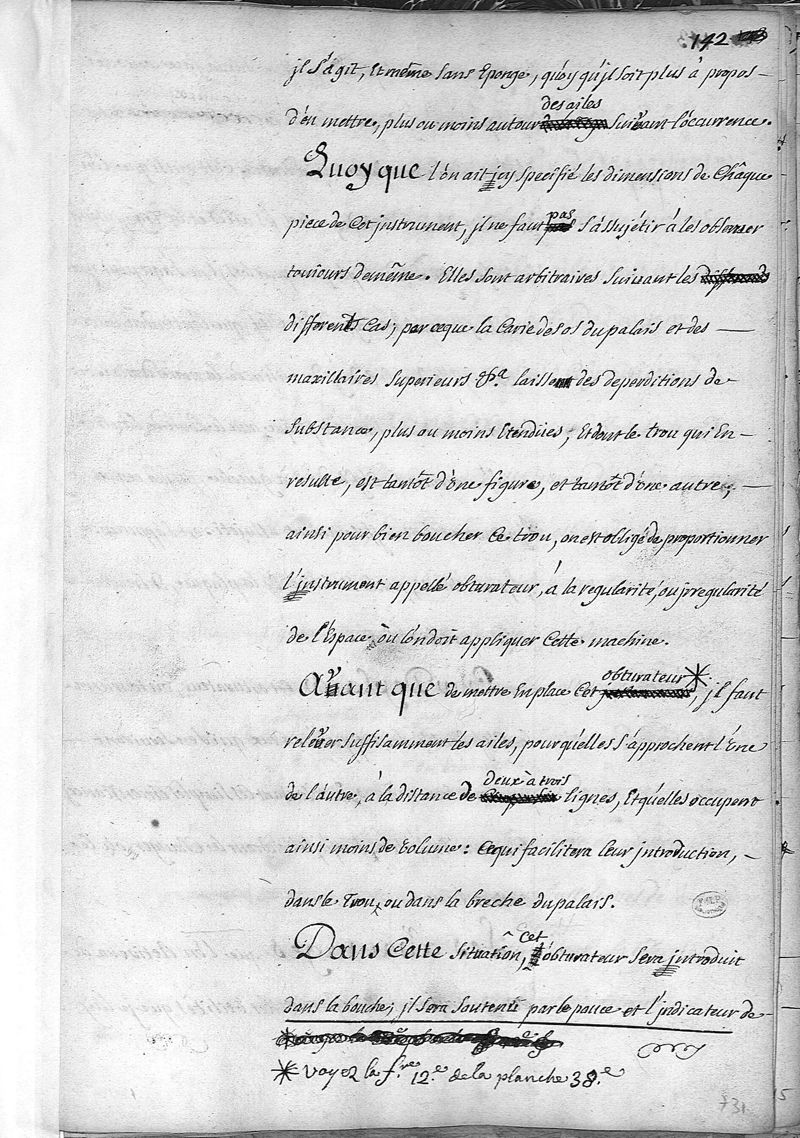 142
jl s'agit, Et même sans Eponge, quoy qu'jl soit plus à propos
d'en mettre, plus ou moins autour des ailes suivant l'occurrence.
Quoy que l'on ait jcy specifié les dimensions de Châque
piece de Cet jnstrument, jl ne faut pas s'assujétir à les observer
toujours de même. Elles sont arbitraires suivant les
differents Cas; par ceque la Carie des os du palais et des
maxillaires superieurs &.a laissent des deperditions de
substance, plus ou moins Etendües, Et dont le trou qui En
resulte, est tantôt d'Une figure, et tantôt d'Une autre;
ainsi pour bien boucher Ce trou, on est obligé de proportionner
l'jnstrument appellé obturateur, à la regularité, ou jrregularité
de l'Espace où l'on doit appliquer Cette machine.
Avant que de mettre En place Cet obturateur*, jl faut
relever suffisamment les ailes, pour qu'elles s'approchent l'Une
de l'autre, à la distance de deux à trois lignes, Et qu'elles occupent
ainsi moins de Volume: Ce qui facilitera leur introduction,
dans le Trou, ou dans la breche du palais.
Dans Cette situation, cet obturateur sera jntroduit
dans la bouche; jl sera soutenu par le pouce et l'jndicateur de
* Voyez la f.re 12.e de la planche 38.e
731